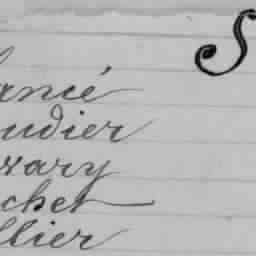 S
ancé
udier
zary
chet
llier